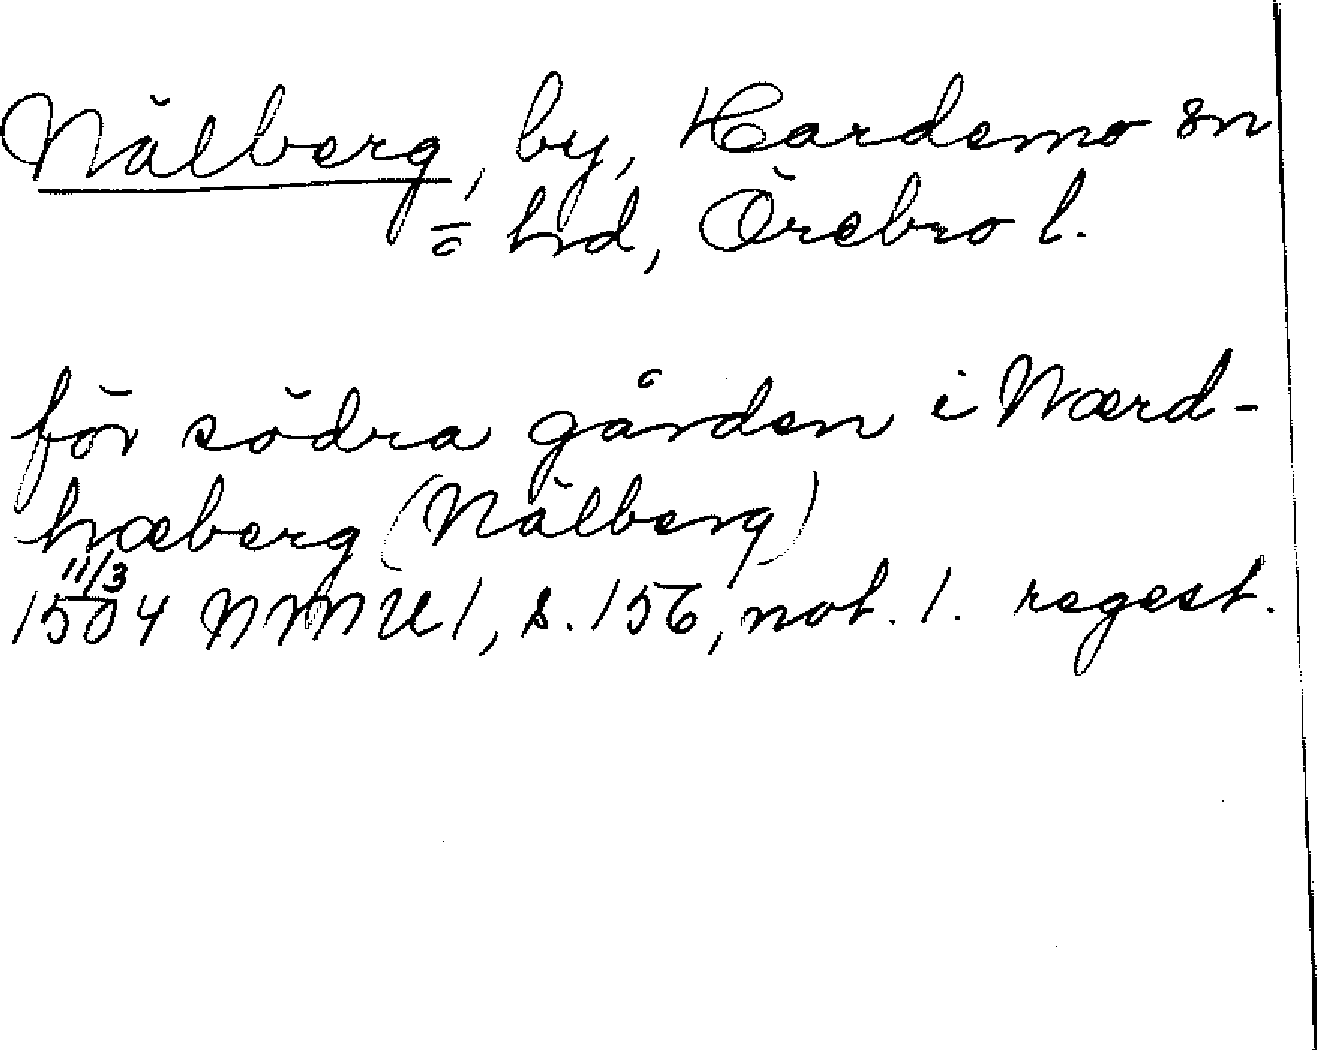 Nälberg, by, Hardemo sn
o hd, Örebro l.
för södra gården i Nærd-
hæberg (Nälberg)
11/3
1504 NMU 1, s. 156, not. 1. regest.